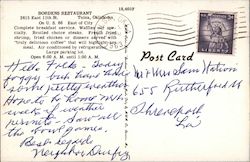 BORDENS RESTAURANT
2615 East 11th St. Tulsa, Oklahoma
On U. S. 66 East of City
Complete breakfast service. Waffles our specialty. Broiled choice steaks. Fresh fried
shrimp, fried chicken or dinners served with
"truly delicious coffee" that will highlight any
meal. Air conditioned by refrigeration.
Large parking lot.
Open 6:00 A.M. until 1:00 A.M.
Post Card
Hello Folks - Sorry
foggy but have had
some pretty weather
Hope to be home
week if weather
permits - saw all
the bowl games.
Best regards
Neighbor
Mr & Mrs Sam Watson
655 Rutherford St
Shreveport
La